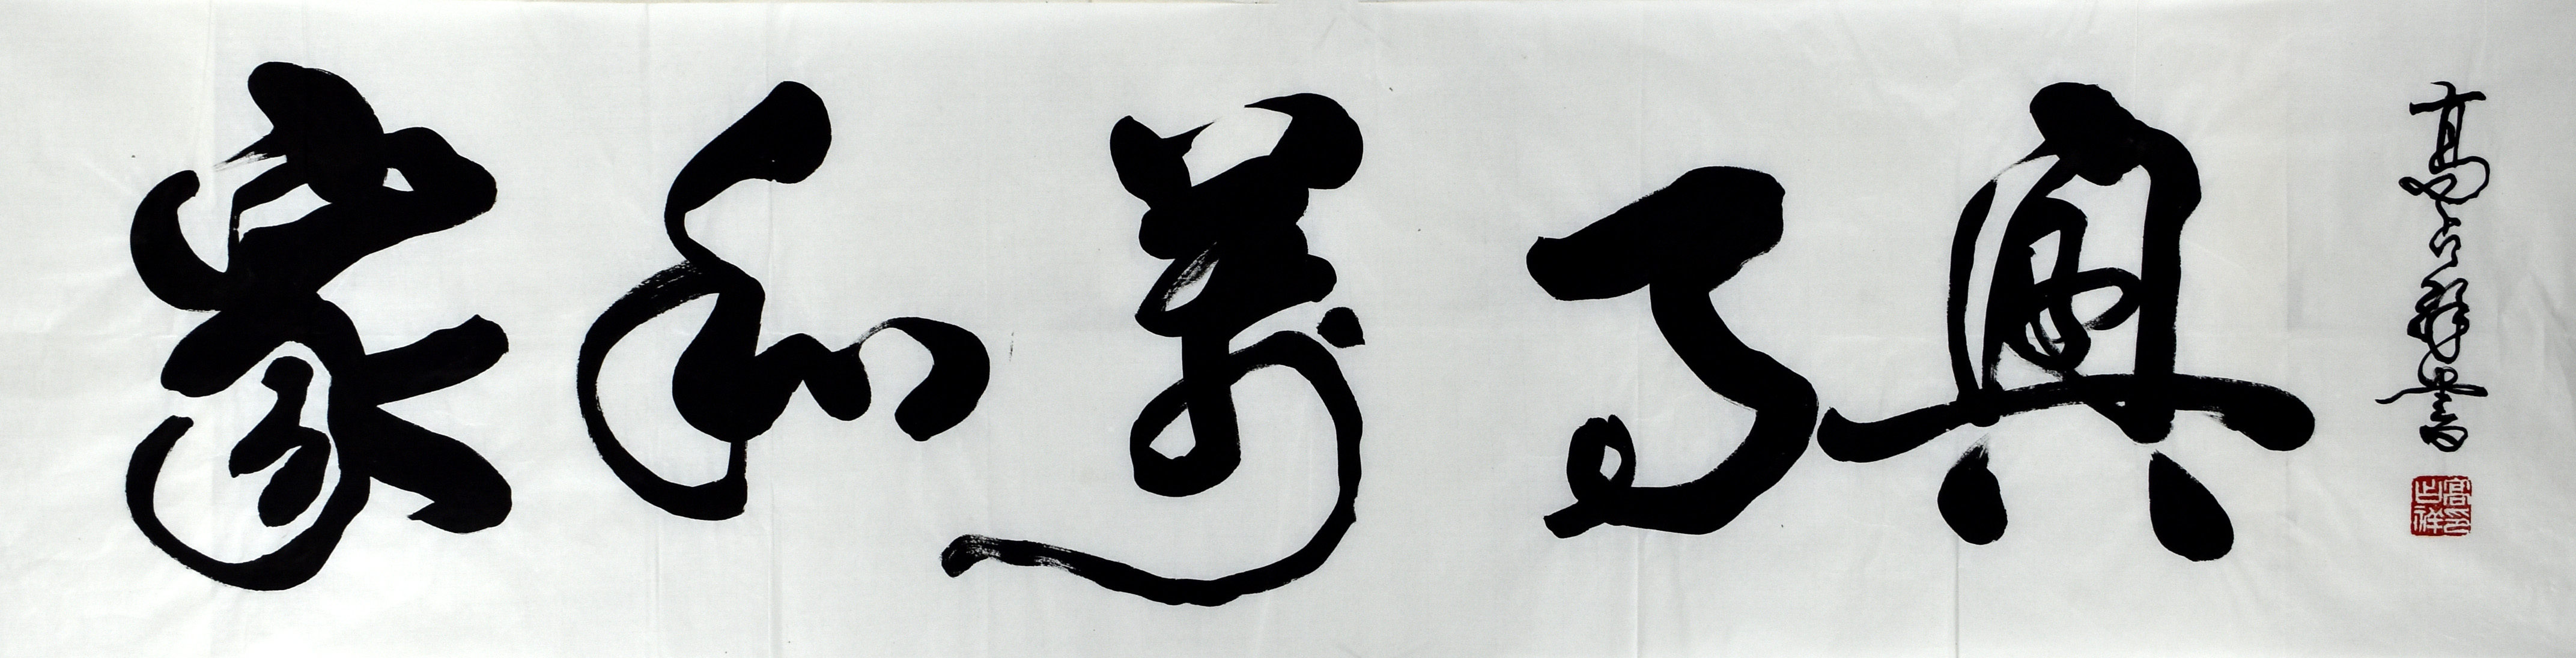 家和萬事興
高占祥書
高占祥印